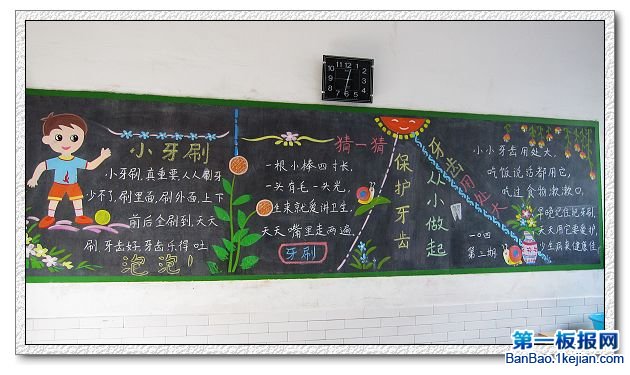 小牙刷
小牙刷,真重要,人人刷牙
少不了,刷里面,刷外面,上下
前后全刷到,天天
刷,牙齿好,牙齿乐得吐
泡泡!
猜一猜
一根小棒四寸长,
一头有毛一头光,
生来就爱讲卫生,
天天嘴里走两遍,
牙刷
保护牙齿
从小做起
牙齿用处大
小小牙齿用处大,
吃饭说话都用它,
吃过食物漱漱口,
早晚记住把牙刷,
天天用它要爱护,
少生病来健康佳,
一〇四
第三期
12
第一板报网
BanBao.1kejian.com